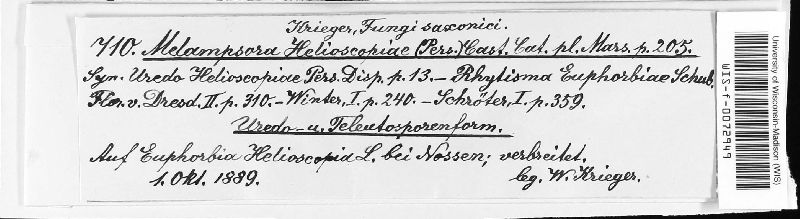 Krieger, Fungi saxonici.
710. Melampsora Helioscopiae (Pers.) Cast. Cat. pl. Mars. p. 205.
Syn. Uredo Helioscopiae Pers. Disp. p. 13. – Rhytisma Euphorbiae Schub.
Flor. v. Dresd. II. p. 310. – Winter, I. p. 240. – Schröter, I. p. 359.
Uredo- u. Teleutosporenform.
Auf Euphorbia Helioscopia L. bei Nossen; verbreitet.
1. Okt. 1889.
leg. W. Krieger.
University of Wisconsin-Madison (WIS)
WIS-f-0072949